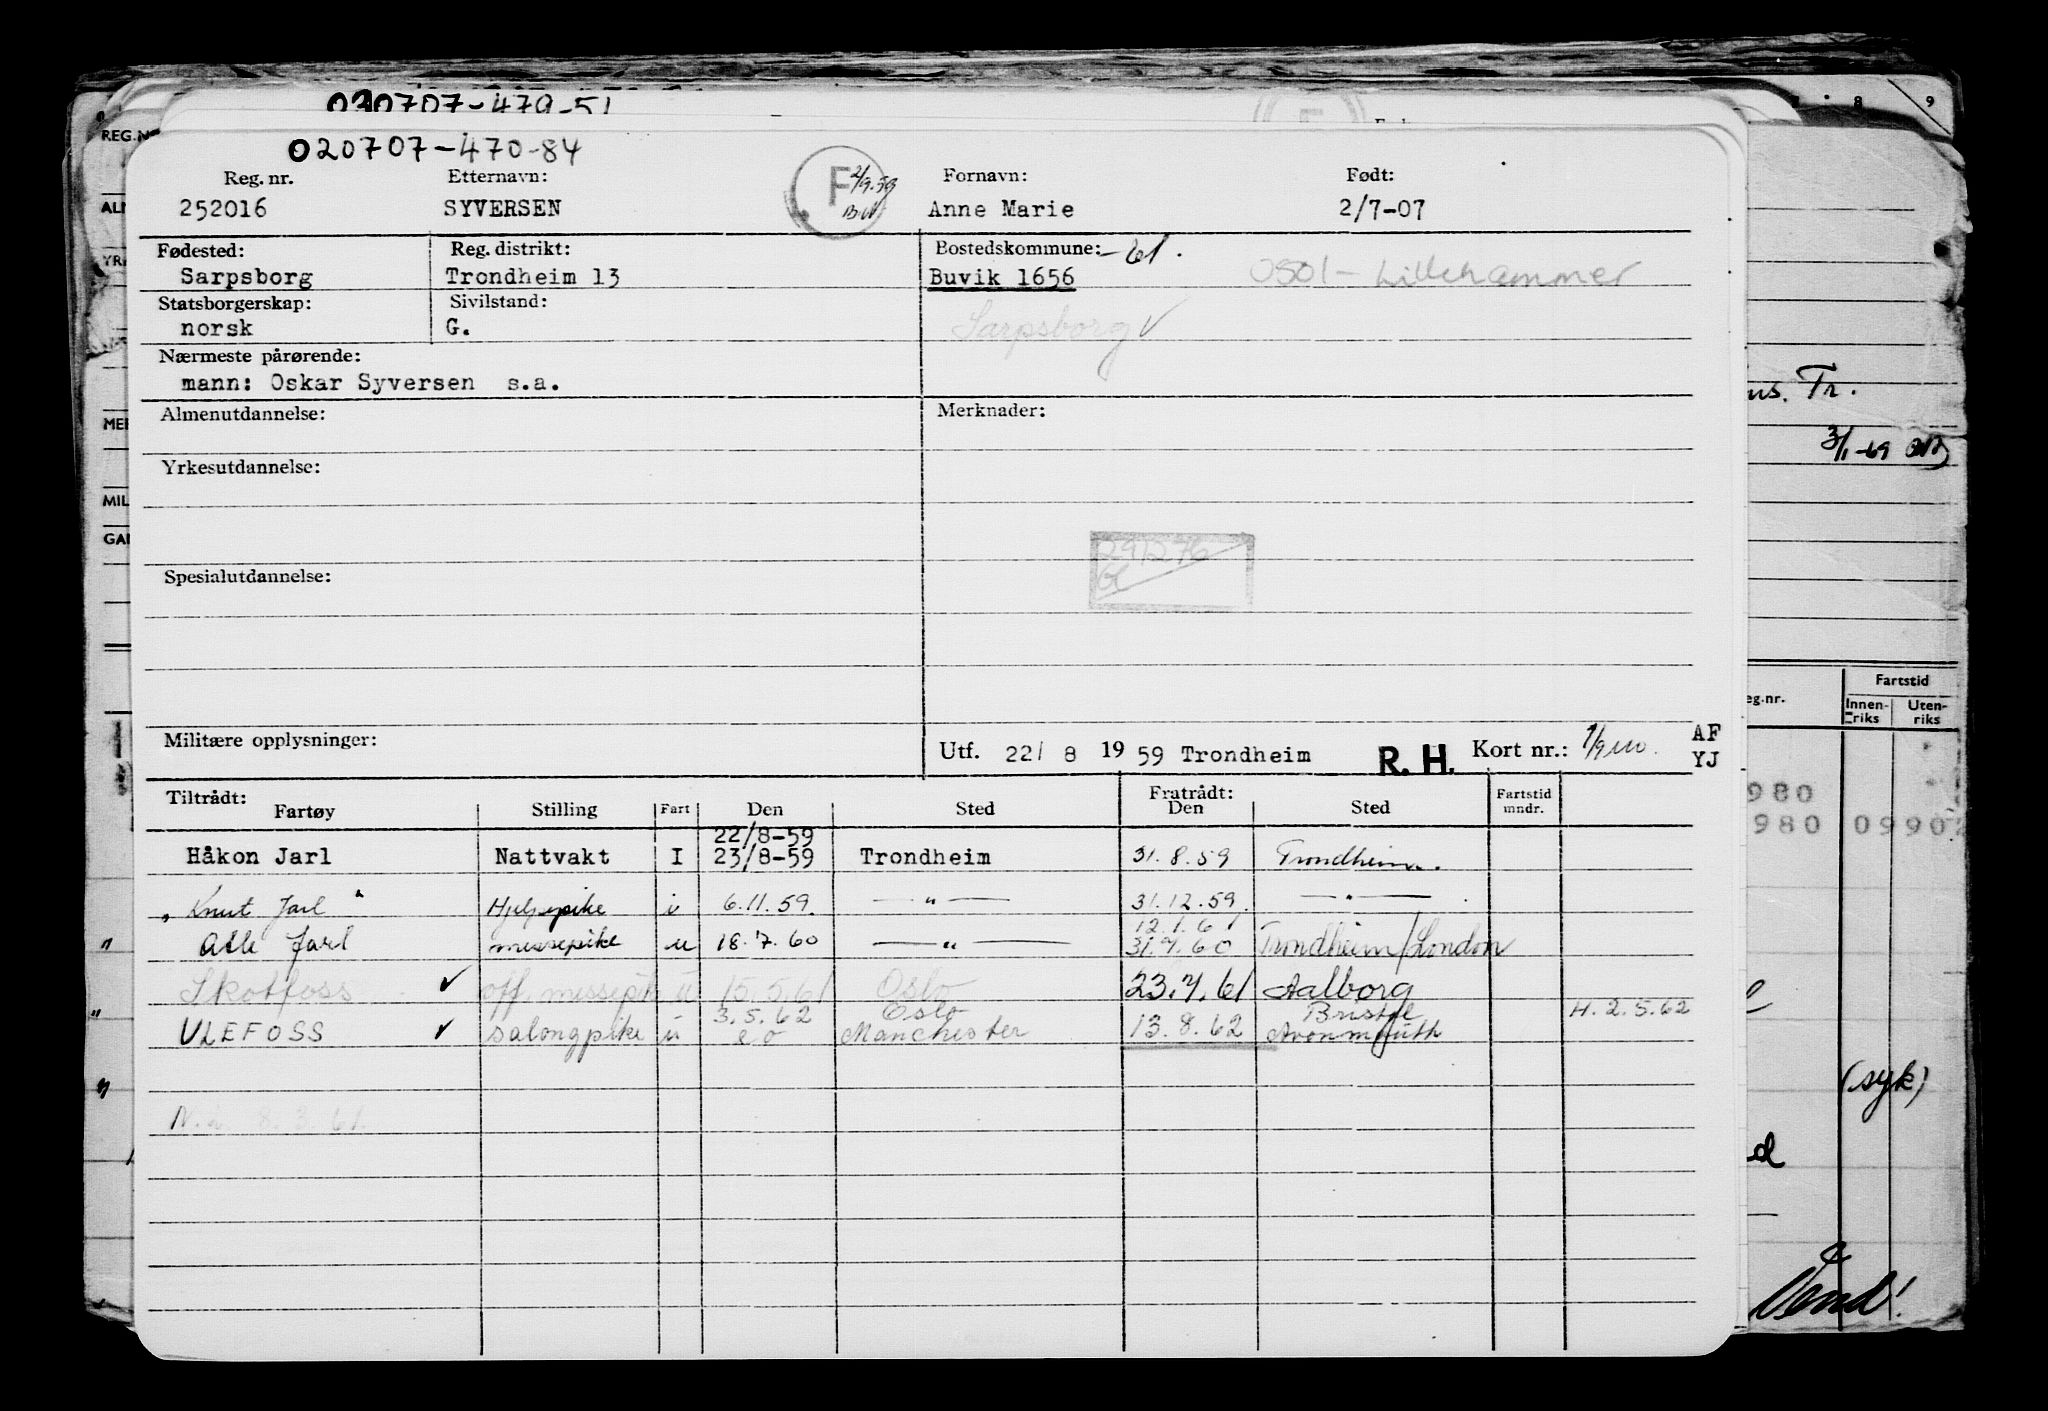 020707-479-51
020707-470-84
Reg. nr. Etternavn: Fornavn: Født:
252016 SYVERSEN F 2/9.59 Anne Marie 2/7-07
Fødested: Reg. distrikt: Bostedskommune: -61.
Sarpsborg Trondheim 13 Buvik 1656 0501 - Lillehammer
Statsborgerskap: Sivilstand:
norsk G. Sarpsborg ✓
Nærmeste pårørende:
mann: Oskar Syversen s.a.
Almenutdannelse: Merknader:
Yrkesutdannelse:
291276
Spesialutdannelse:
Militære opplysninger: Utf. 22/ 8 1959 Trondheim R. H. Kort nr.: AF
YJ
Tiltrådt: Fratrådt: Fartstid
Fartøy Stilling Fart Den Sted Den Sted mndr.
22/8-59
Håkon Jarl Nattvakt I 23/8-59 Trondheim 31.8.59 Trondheim.
"Knut Jarl" Hjelpepike u 6.11.59. — " — 31.12.59. — " —
12.1.61
Atle Jarl messepike u 18.7.60 — " — 31.7.60 Trondheim/London
Skotfoss ✓ off. messepike u 15.5.61 Oslo 23.7.61 Aalborg
3.5.62 Oslo Bristol H. 2.5.62
ULEFOSS ✓ salongpike u e o Manchester 13.8.62 Avonmouth
N.L. 8.3.61.
REG.N
MIL
8 9
Tr.
3/1-69
eg.nr. Fartstid
Innen-riks Uten-riks
980
980 0990
(syk)
Vend!